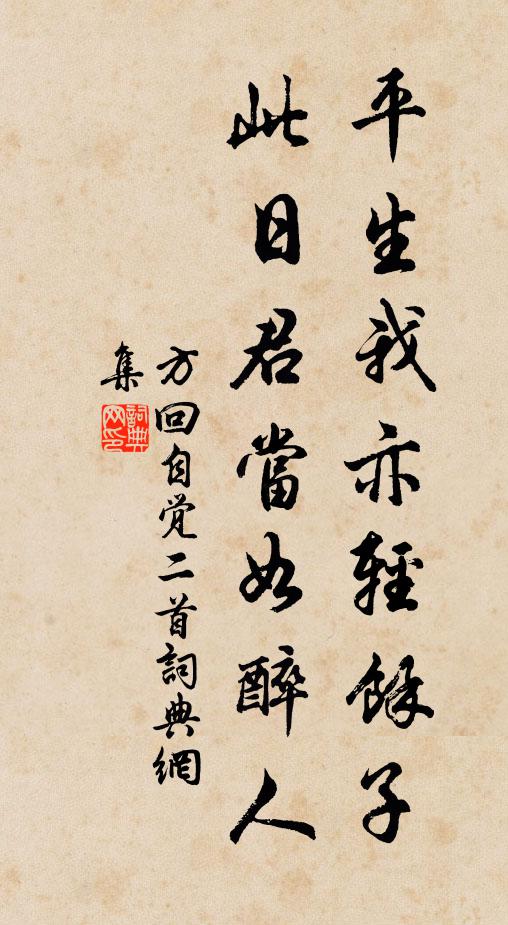 平生我亦輕餘子
此日君當如醉人
方回自觉二首詞典網
集
詞典网印